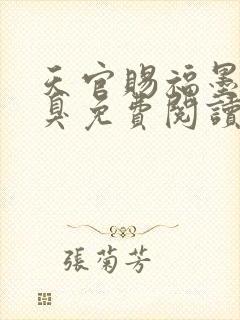 天官賜福墨
臭免費閱讀
張菊芳